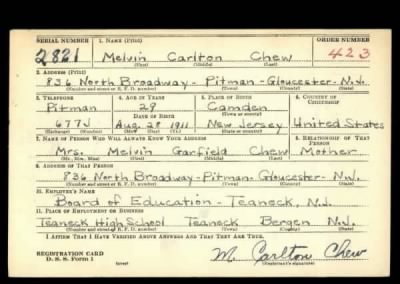 SERIAL NUMBER 1. NAME (Print) ORDER NUMBER
2821 Melvin Carlton Chew 423
(First) (Middle) (Last)
2. ADDRESS (Print)
836 North Broadway - Pitman - Gloucester - N.J.
(Number and street or R. F. D. number) (Town) (County) (State)
3. TELEPHONE 4. AGE IN YEARS 5. PLACE OF BIRTH 6. COUNTRY OF CITIZENSHIP
Pitman 28 Camden
DATE OF BIRTH (Town or county)
677J Aug. 28 1911 New Jersey United States
(Exchange) (Number) (Mo.) (Day) (Yr.) (State or country)
7. NAME OF PERSON WHO WILL ALWAYS KNOW YOUR ADDRESS 8. RELATIONSHIP OF THAT PERSON
Mrs. Melvin Garfield Chew Mother
(Mr., Mrs., Miss) (First) (Middle) (Last)
9. ADDRESS OF THAT PERSON
836 North Broadway - Pitman - Gloucester - N.J.
(Number and street or R. F. D. number) (Town) (County) (State)
10. EMPLOYER'S NAME
Board of Education - Teaneck, N.J.
11. PLACE OF EMPLOYMENT OR BUSINESS
Teaneck High School Teaneck Bergen N.J.
(Number and street or R. F. D. number) (Town) (County) (State)
I AFFIRM THAT I HAVE VERIFIED ABOVE ANSWERS AND THAT THEY ARE TRUE.
REGISTRATION CARD
D. S. S. FORM 1 (over) M. Carlton Chew
(Registrant's signature)